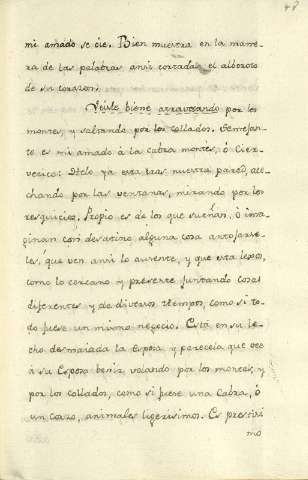 48
mi amado se oie. Bien muestra en la mane-
ra de las palabras ansi cortadas el alboroto
de su corazon.
Veisle biene atravesando por los
montes, y saltando por los collados. Semejan-
te es mi amado à la cabra montes, ò Cier-
vecico: Helo yà està tras nuestra pared, ace-
chando por las ventanas, mirando por los
resquicios. Propio es de los que sueñan, ò ima-
ginan con desatino alguna cosa antojarse-
les, que ven ansi lo ausente, y que està lexos,
como lo cercano y presente juntando cosas
diferentes y de diversos tiempos, como si to-
do fuese un mismo negocio. Està en su le-
cho desmaiada la Esposa y parecela que vee
à su Esposo benir volando por los montes, y
por los collados, como si fuese una Cabra, ò
un corzo, animales ligerisimos. Es presisi
mo